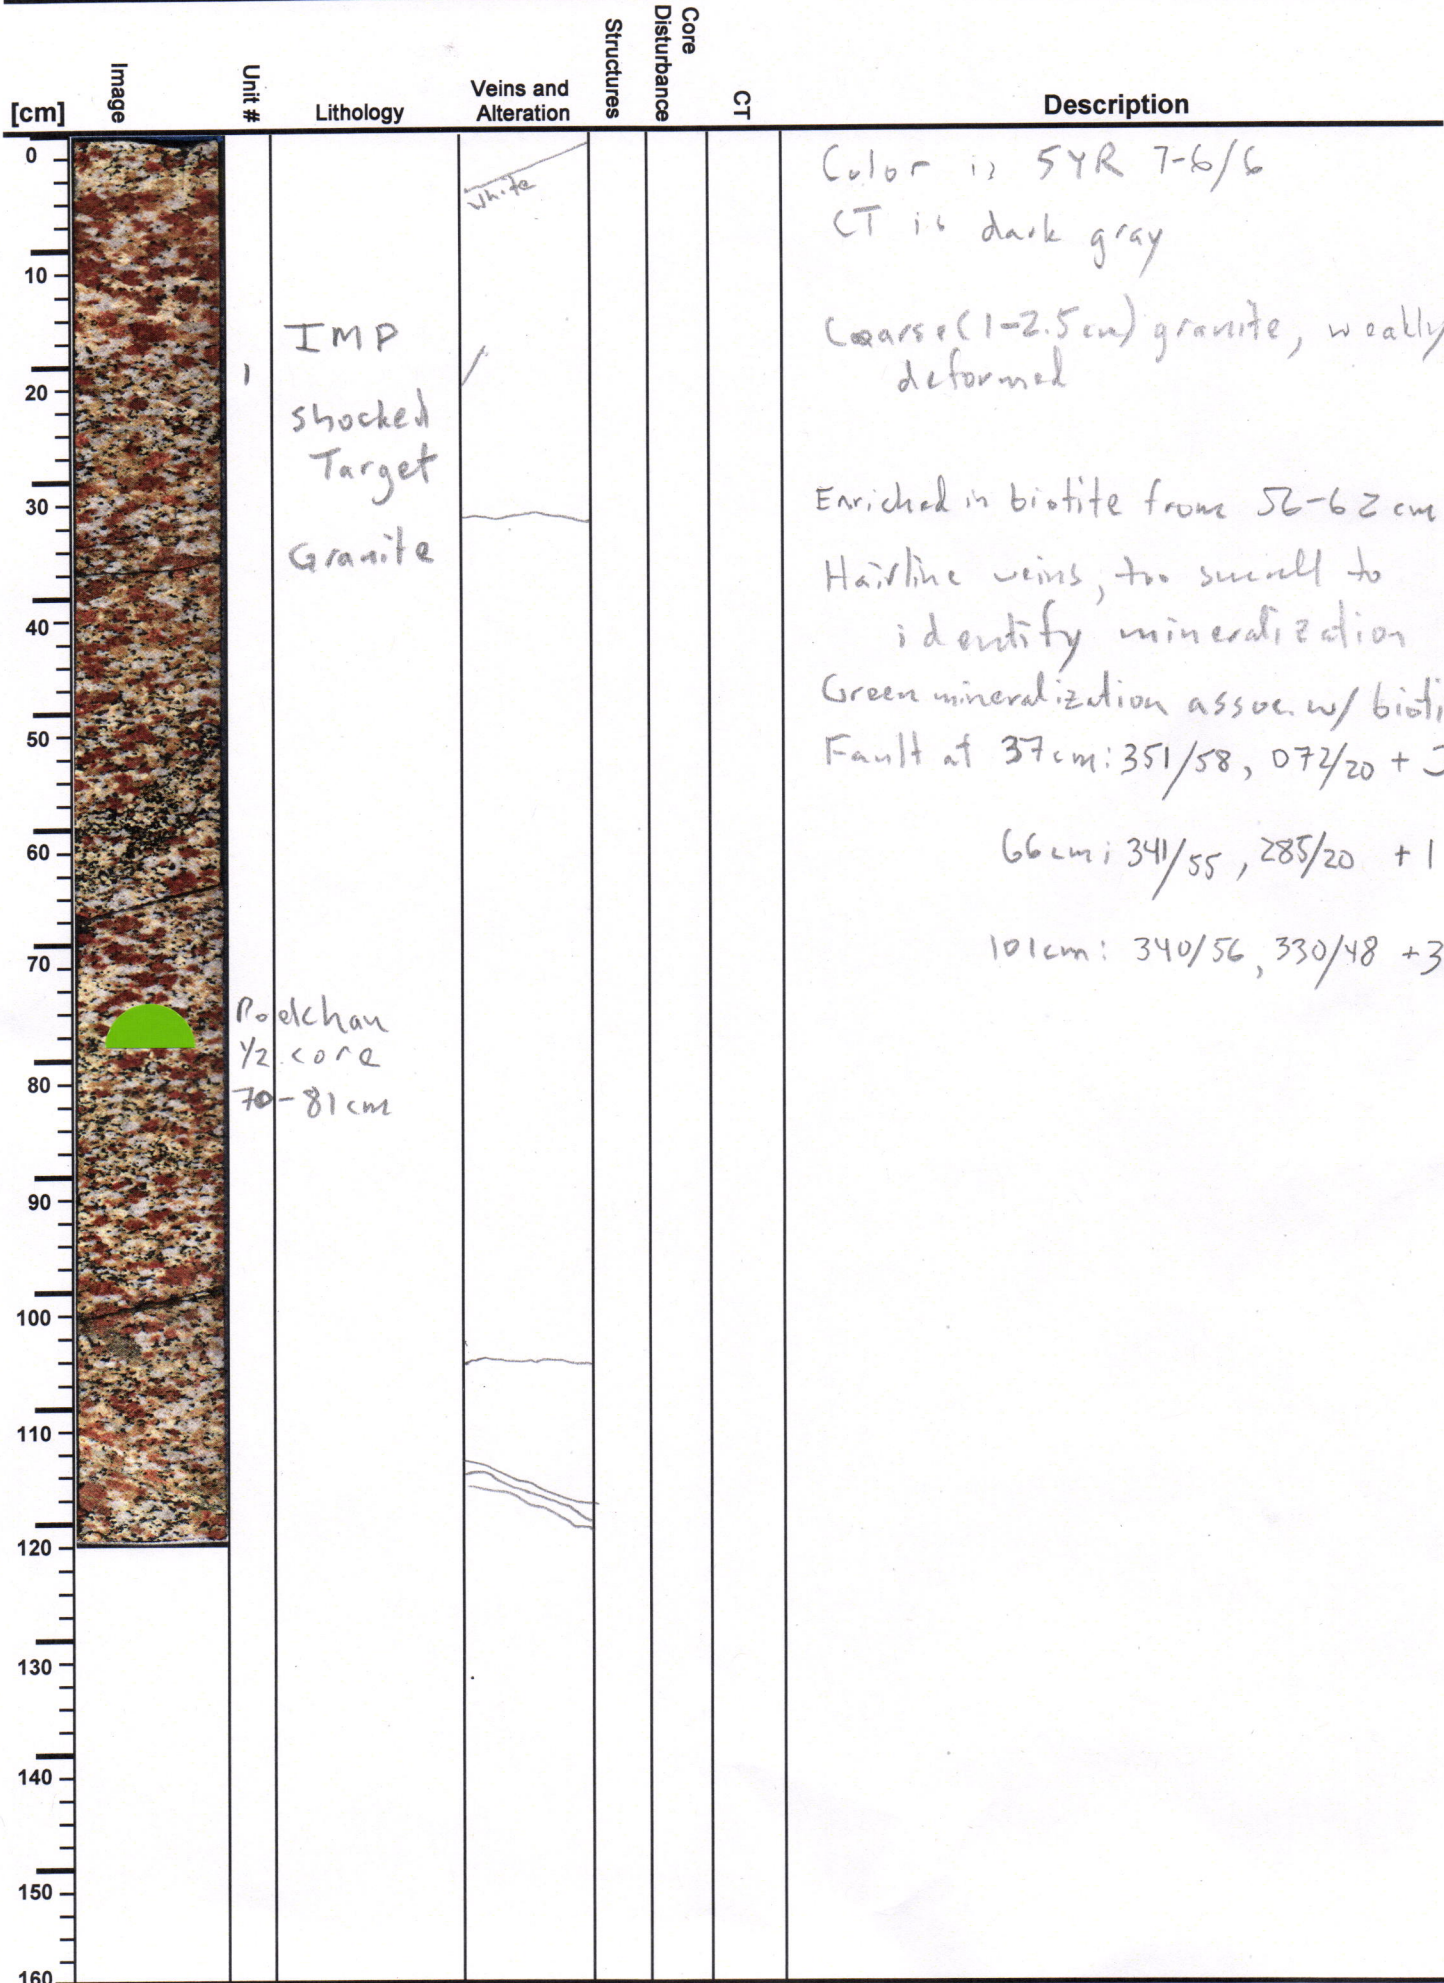 [cm]
Image
Unit #
Lithology
Veins and
Alteration
Structures
Core
Disturbance
CT
Description
0
10
20
30
40
50
60
70
80
90
100
110
120
130
140
150
160
1
IMP
shocked
Target
Granite
Poelchau
1/2 core
70-81cm
white
Color is 5YR 7-6/6
CT is dark gray
Coarse (1-2.5cm) granite, weakly
deformed
Enriched in biotite from 56-62 cm
Hairline veins, too small to
identify mineralization
Green mineralization assoc. w/ bioti
Fault at 37cm: 351/58, 072/20 +
66cm; 341/55, 285/20 + 1
101cm: 340/56, 330/48 +3